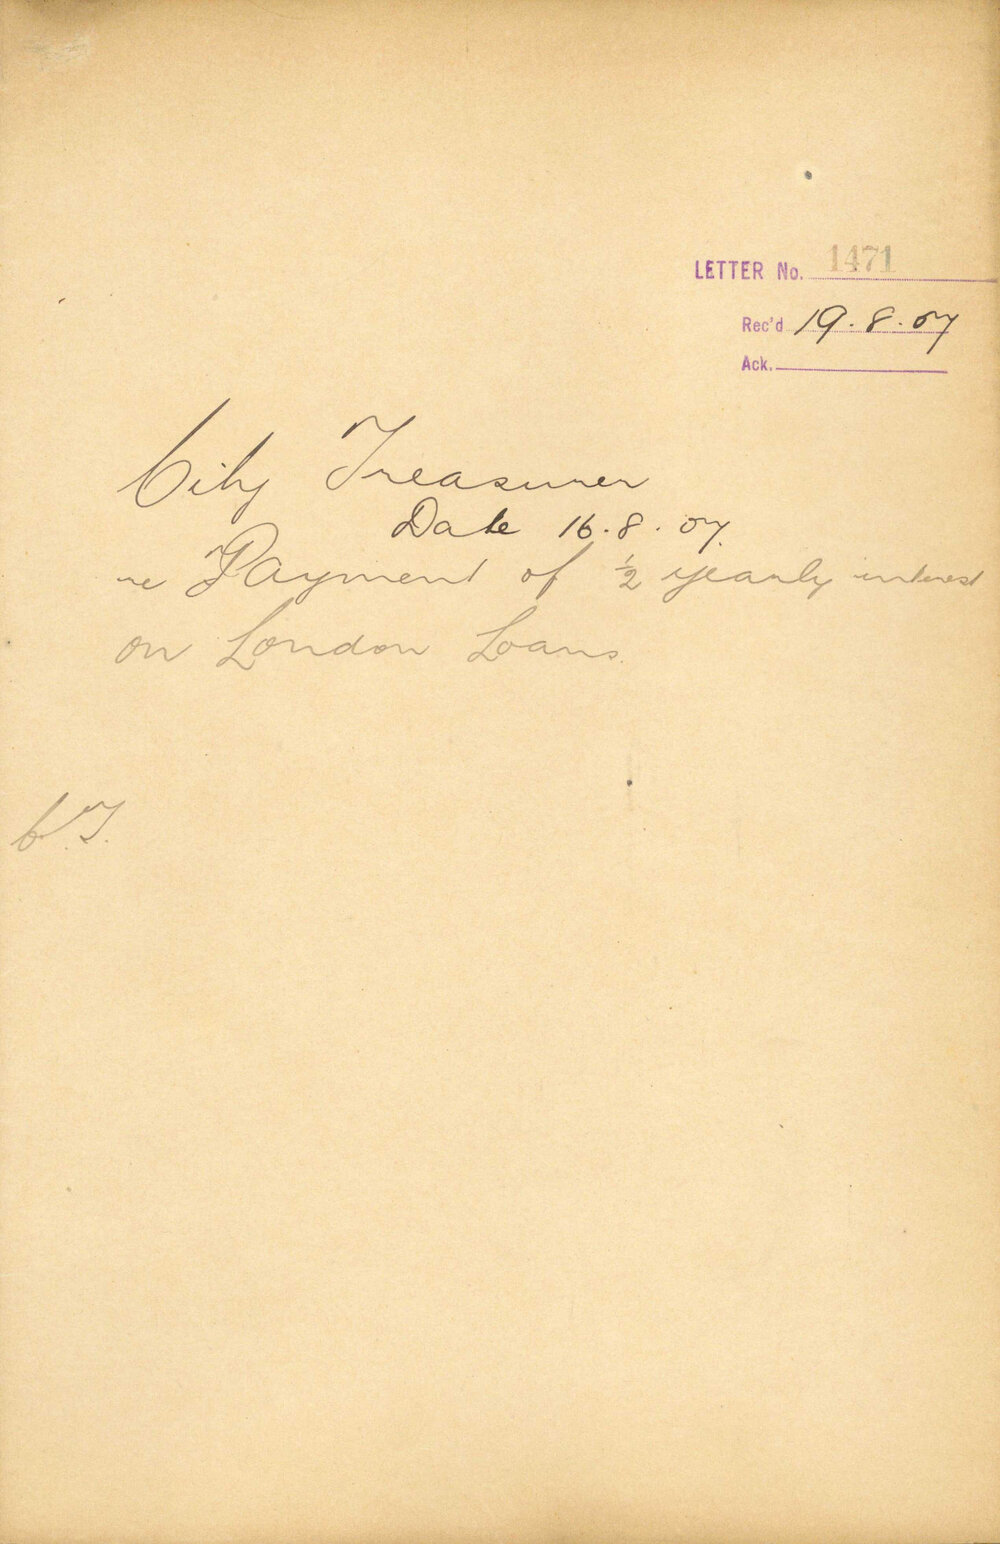 LETTER No. 1471
Rec'd 19.8.07
Ack.
City Treasurer
Date 16.8.07.
re Payment of ½ yearly interest
on London Loans.
C.T.